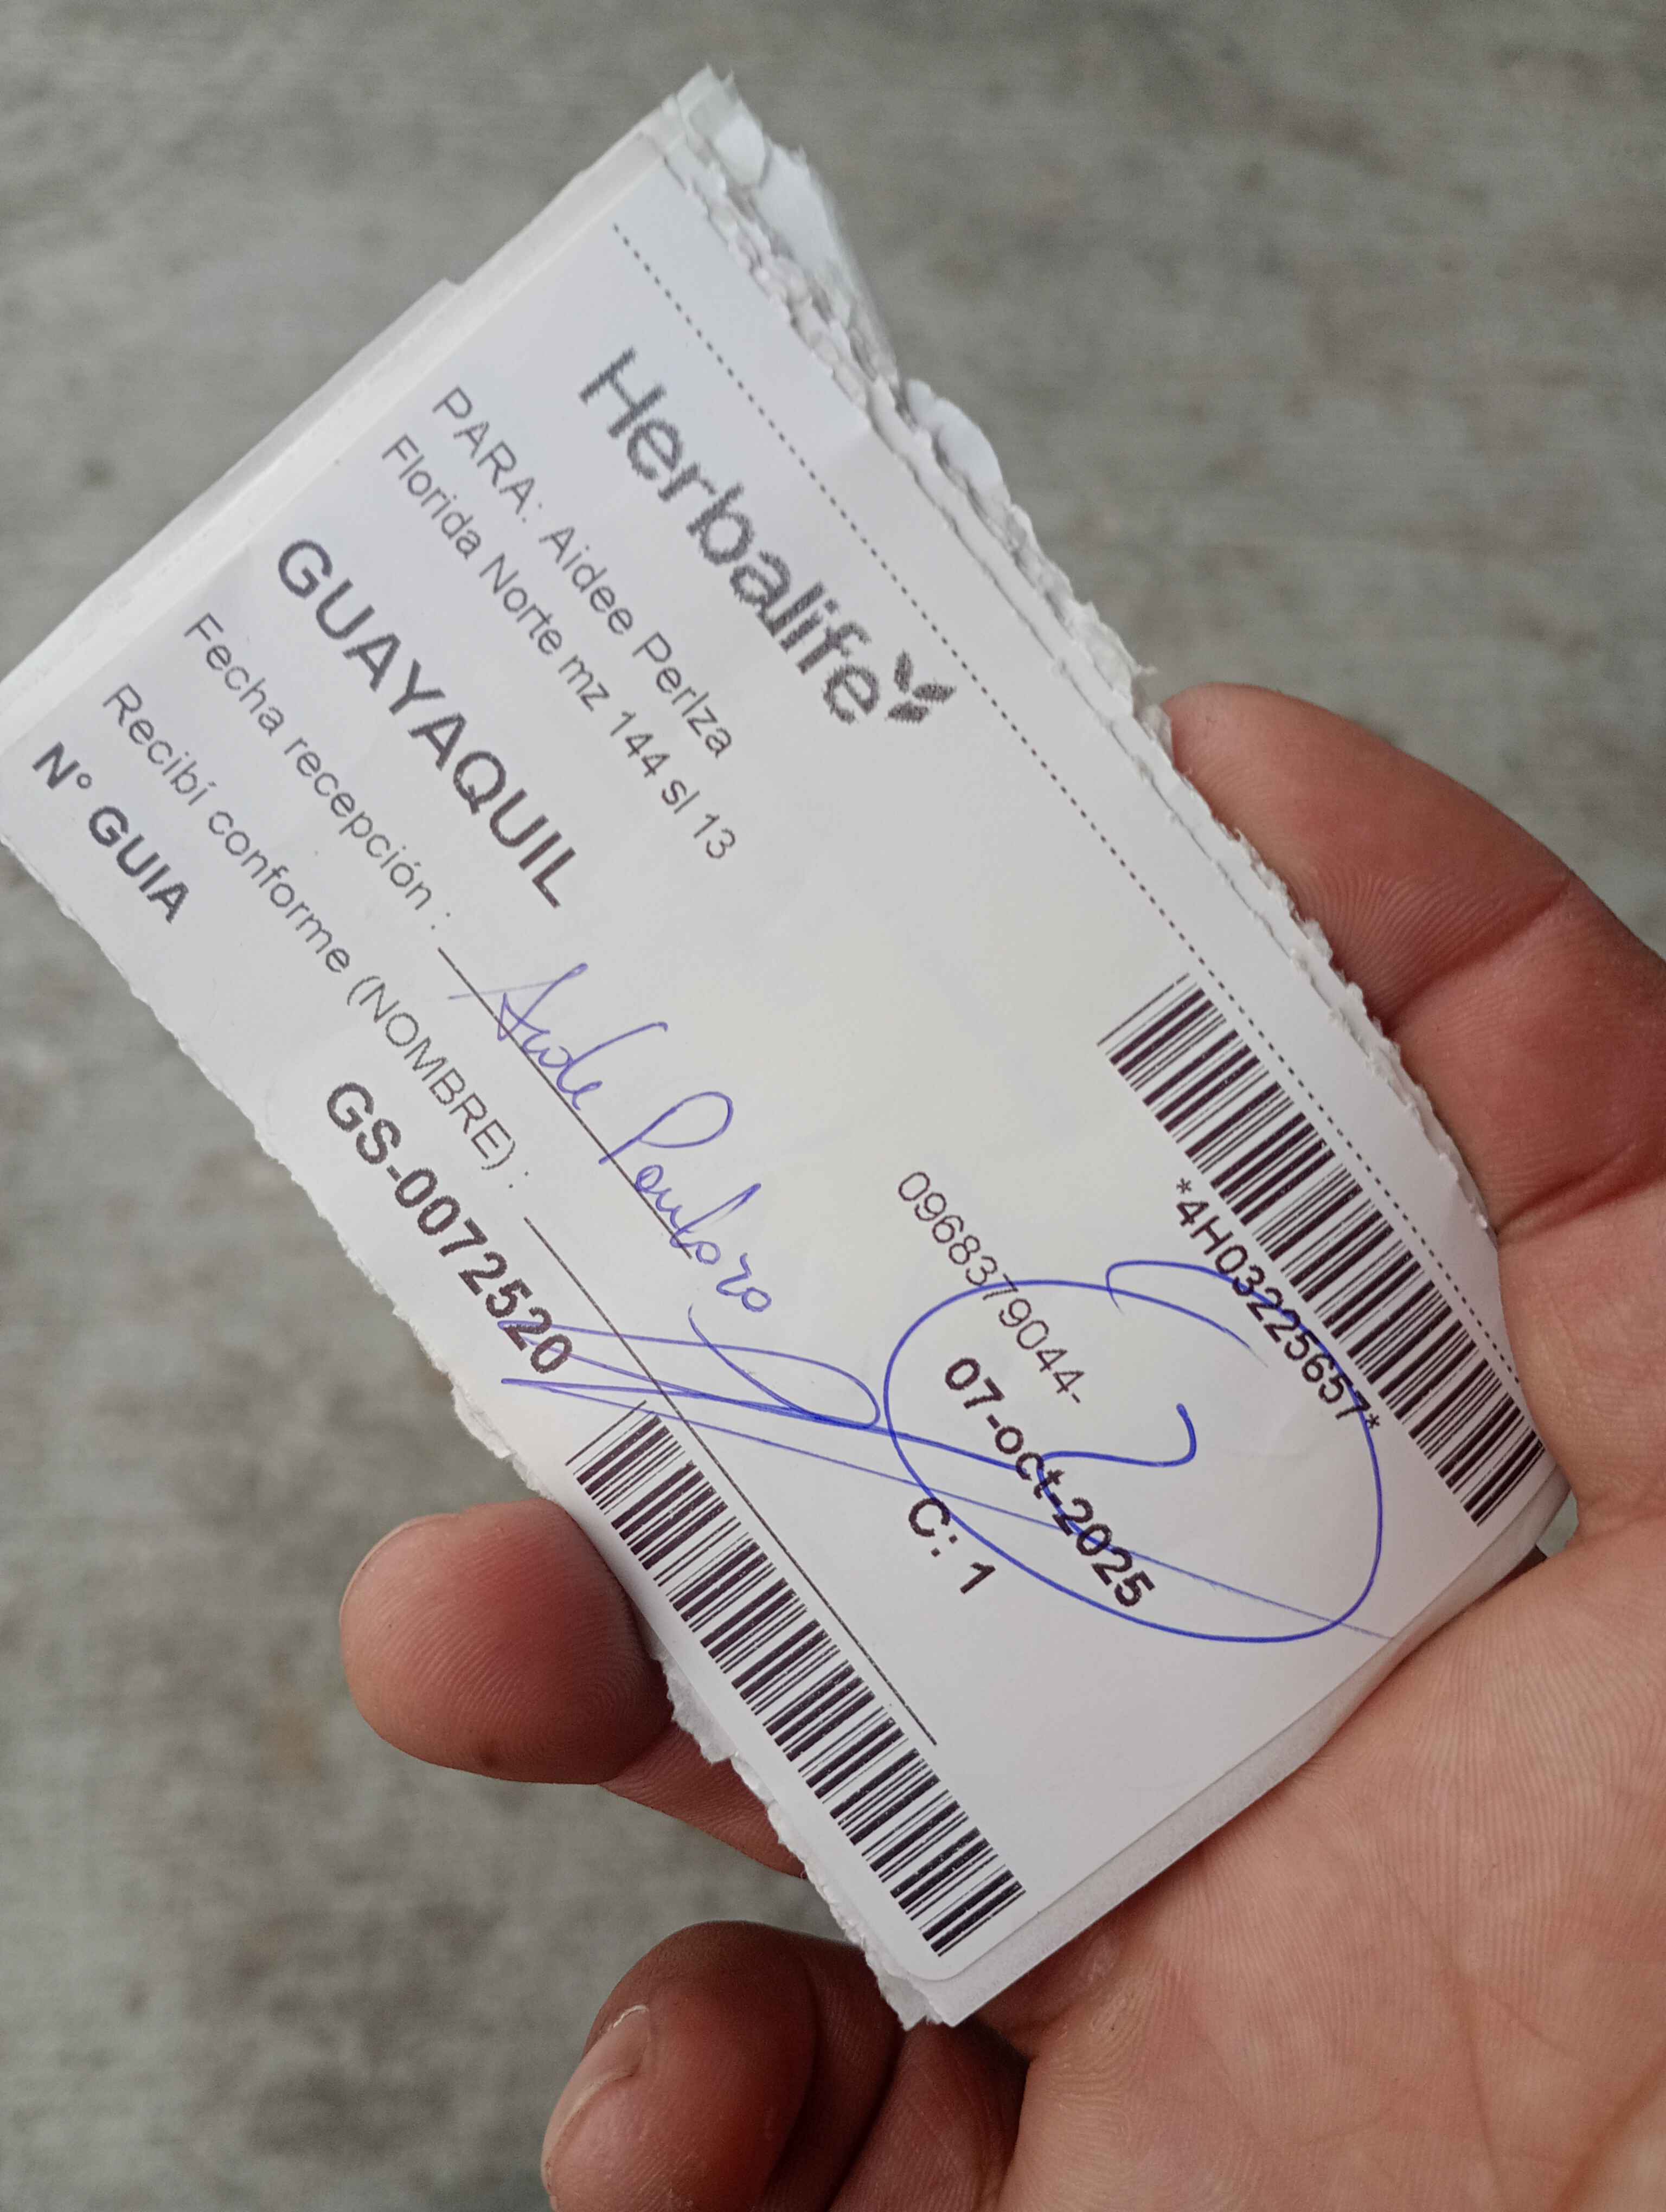 Herbalife
*4H0322565​7*
PARA: Aidee Perlza
Florida Norte mz 144 sl 13
0968379044-
GUAYAQUIL
07-oct-2025
C: 1
Fecha recepción :
Recibí conforme (NOMBRE) :
N° GUIA
GS-0072520